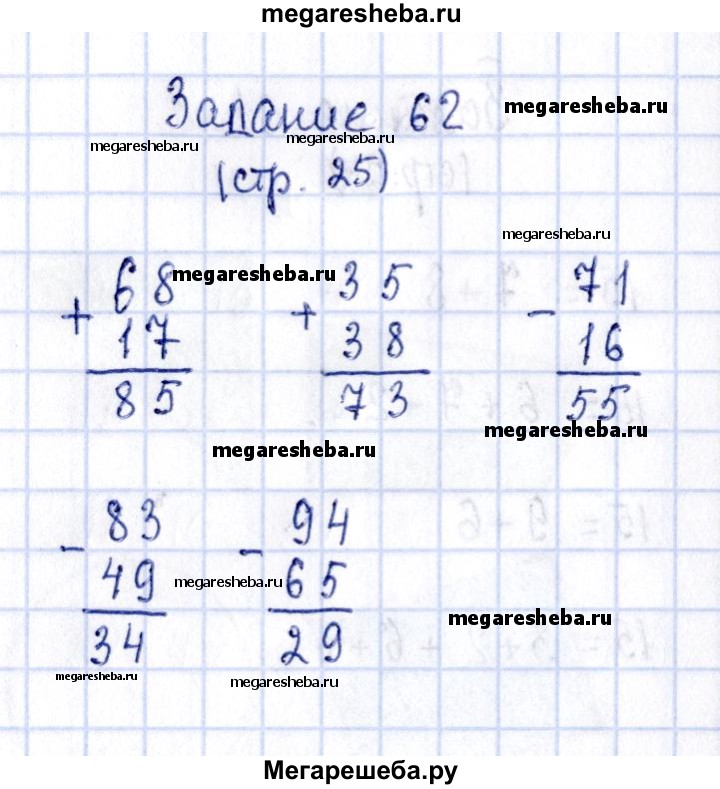 megaresheba.ru
Задание 62
megaresheba.ru
megaresheba.ru
megaresheba.ru
(стр. 25)
megaresheba.ru
68 megaresheba.ru 35 71
+ + -
17 38 16
85 73 55
megaresheba.ru
megaresheba.ru
83 94
- -
49 megaresheba.ru 65
megaresheba.ru
34 29
megaresheba.ru
megaresheba.ru
Мегарешеба.ру